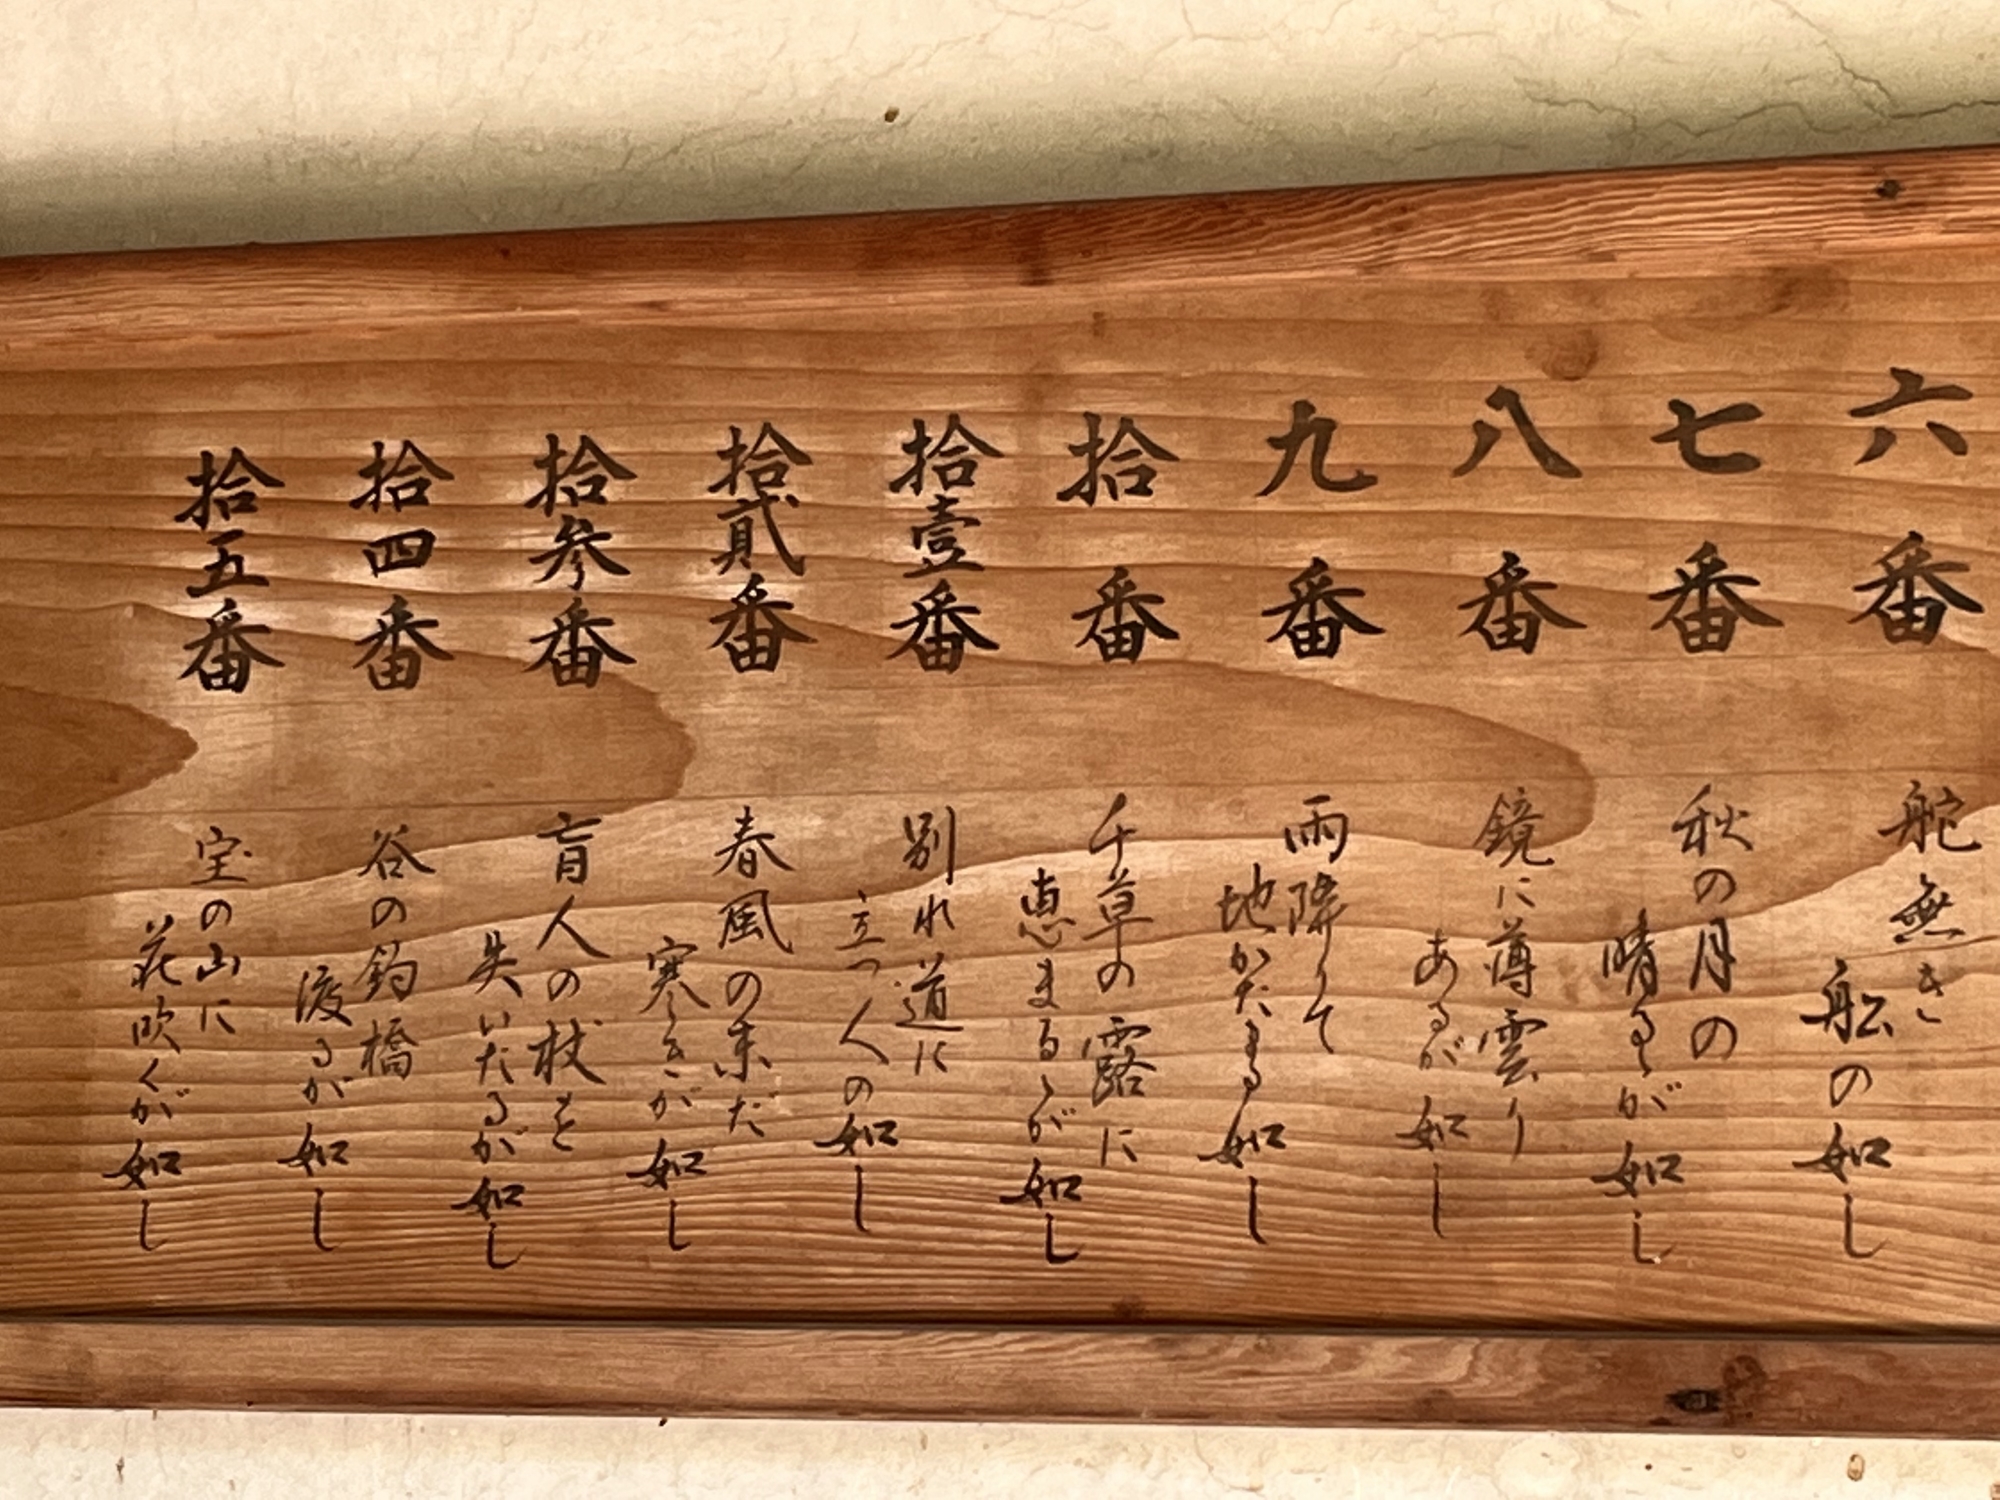 六番
舵無き
舩の如し
七番
秋の月の
晴るゝが如し
八番
鏡に薄雲り
あるが如し
九番
雨降りて
地かたまる如し
拾番
千草の露に
恵まるゝが如し
拾壹番
別れ道に
立つ人の如し
拾貳番
春風の末だ
寒きが如し
拾参番
盲人の杖を
失いたるが如し
拾四番
谷の釣橋
渡るが如し
拾五番
宝の山に
花吹くが如し